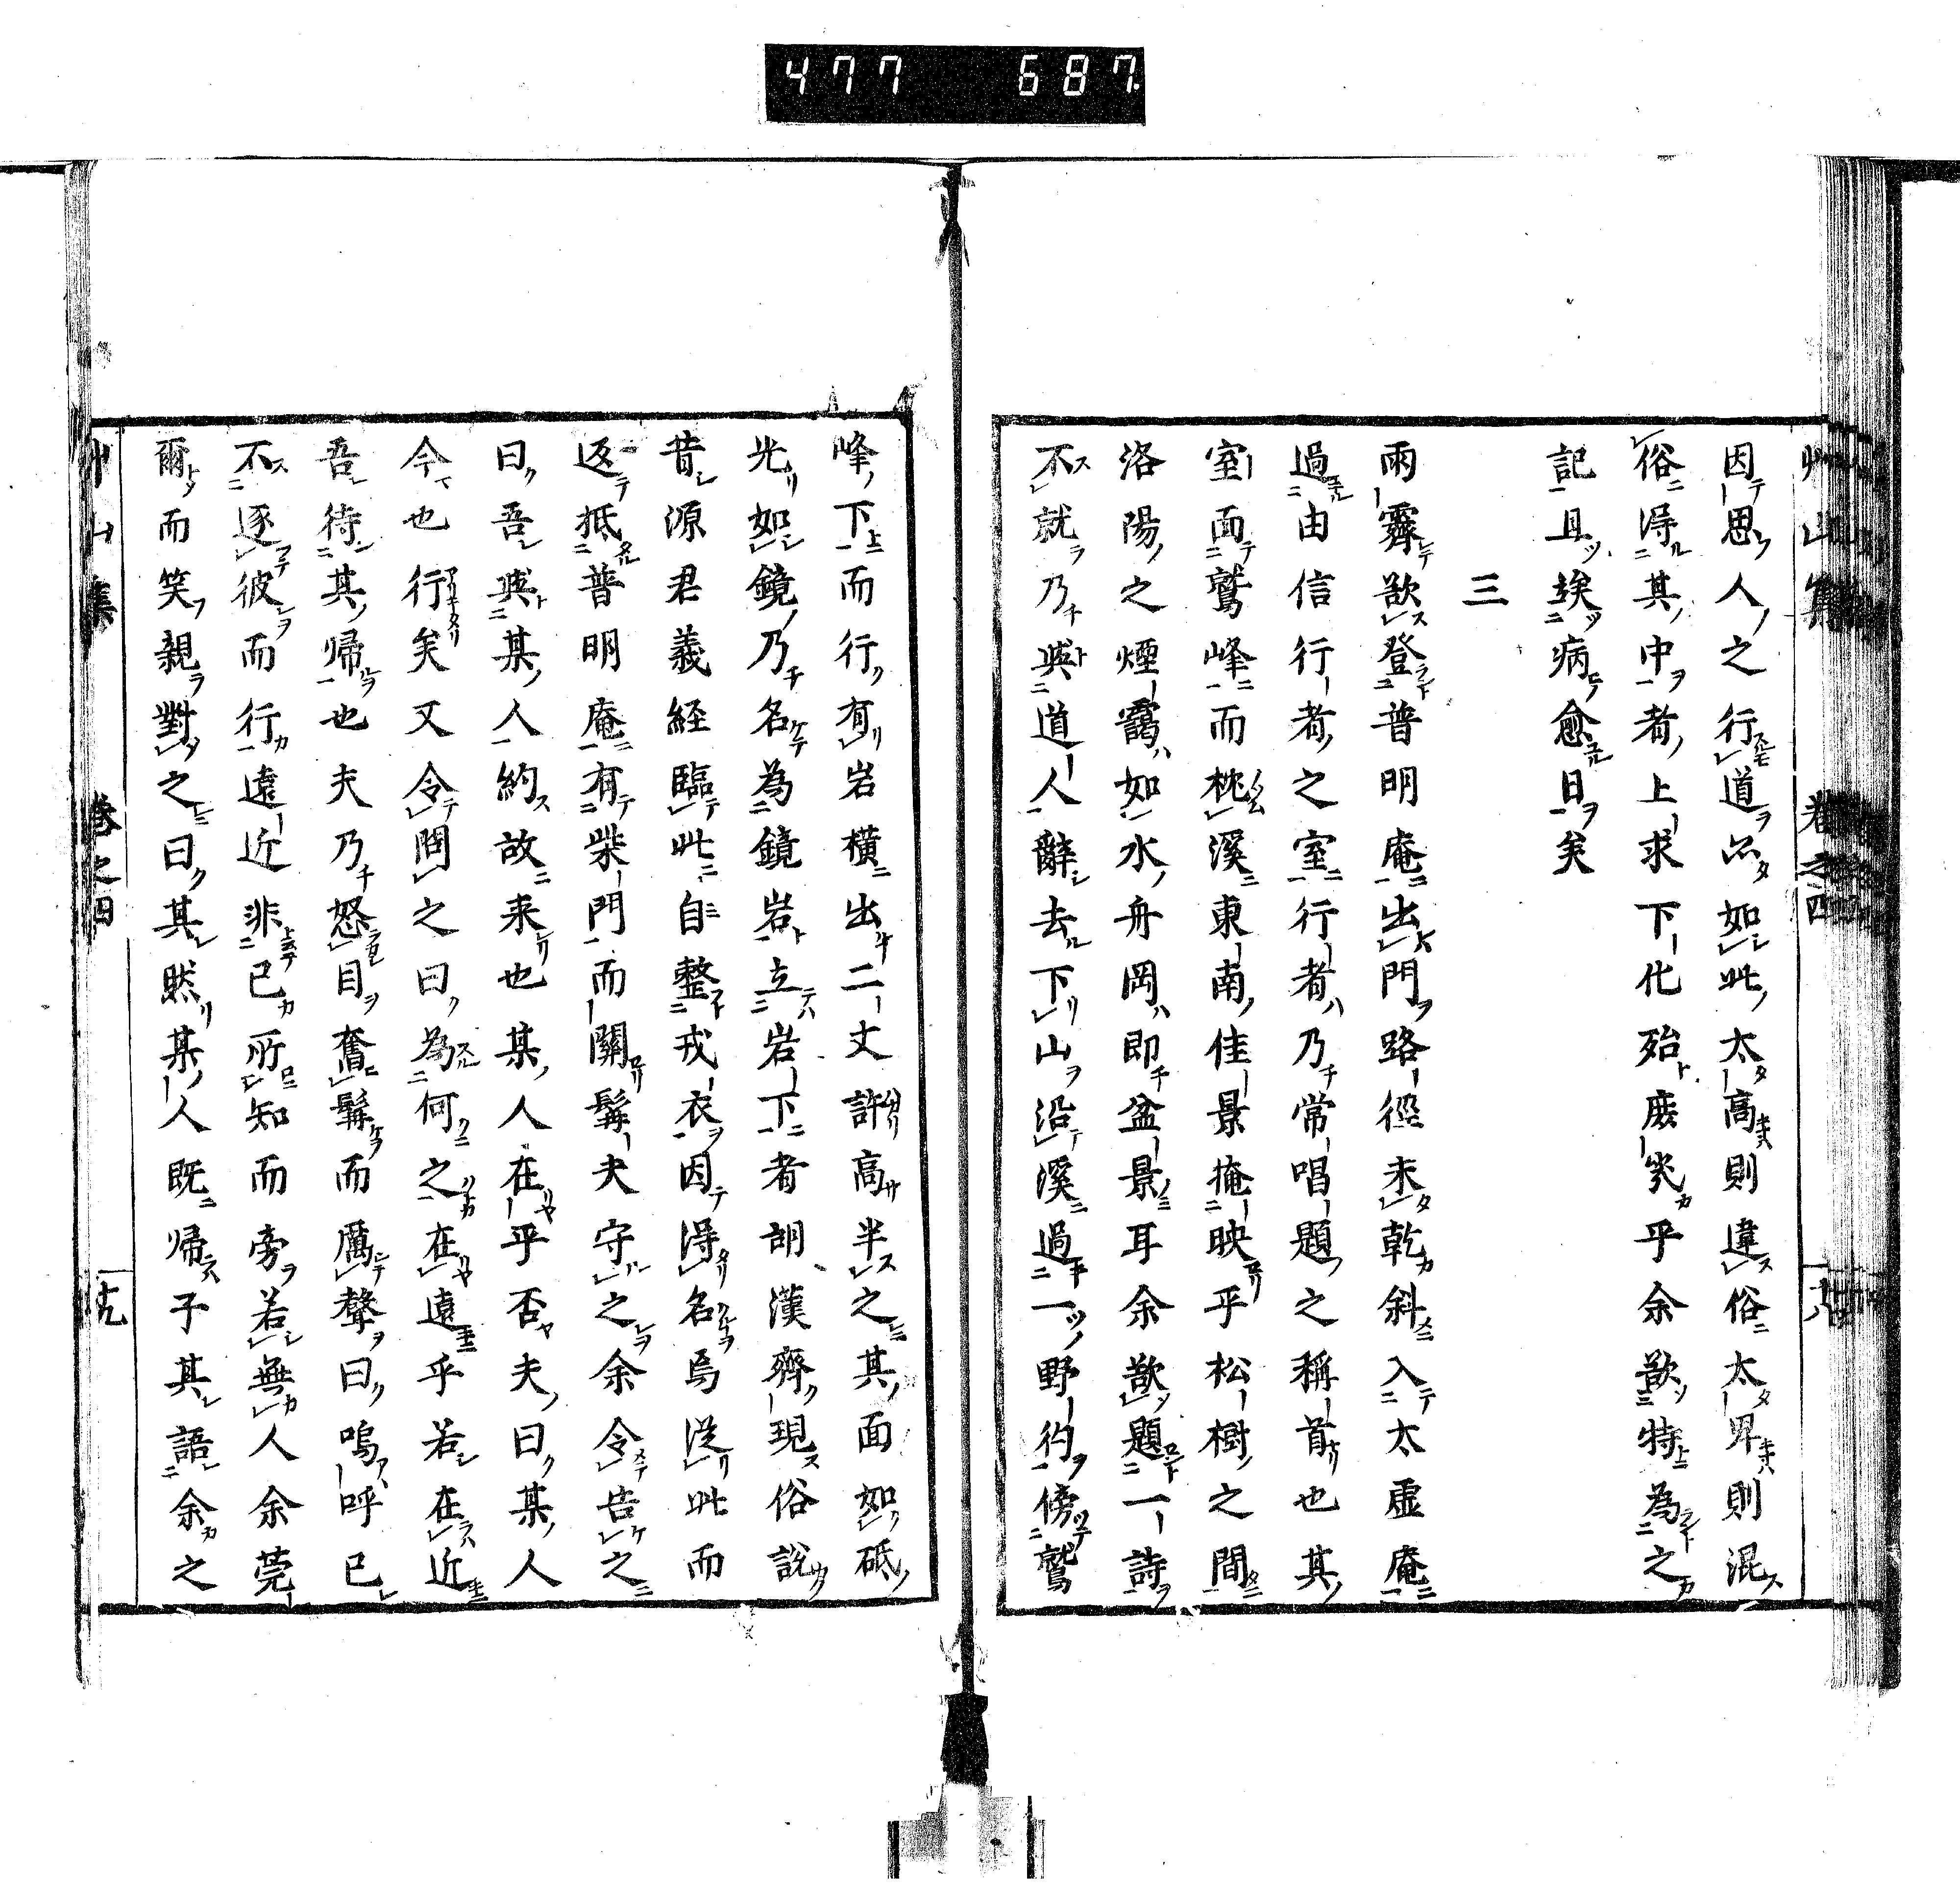 477 687
艸山集 卷之四 十八
因思人之行道亦如此太高則違俗太卑則混
俗得其中者上求下化殆庶幾乎余欲特為之
記且竢病愈日矣
三
雨霽欲登普明庵出門路徑未乾斜入太虛庵
過由信行者之室行者乃常唱題之稱首也其
室面鷲峰而枕溪東南佳景掩映乎松樹之間
洛陽之煙靄如水舟岡即盆景耳余欲題一詩
不就乃與道人辭去下山沿溪過一野彴傍鷲
峰下而行有岩橫出二丈許高半之其面如砥
光如鏡乃名為鏡岩立岩下者胡漢齊現俗說
昔源君義経臨此自整戎衣因得名焉從此而
返抵普明庵有柴門而關髯夫守之余令告之
曰吾與某人約故来也某人在乎否夫曰某人
今也行矣又令問之曰為何之在遠乎若在近
吾待其帰也夫乃怒目奮髯而厲聲曰嗚呼已
不逐彼而行遠近非已所知而旁若無人余莞
爾而笑親對之曰其然某人既帰子其語余之
艸山集 卷之四 十九